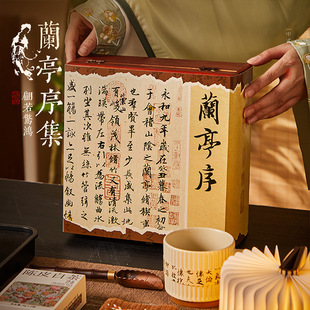 蘭亭序集
翩若驚鴻
蘭亭序
永和九年歲在癸丑暮春之初會
于會稽山陰之蘭亭脩稧事
也羣賢畢至少長咸集此地
有崇山峻領茂林脩竹又有清流激
湍暎帶左右引以為流觴曲水
列坐其次雖無絲竹管弦之
盛一觴一詠亦足以暢敘幽情
陳皮白茶